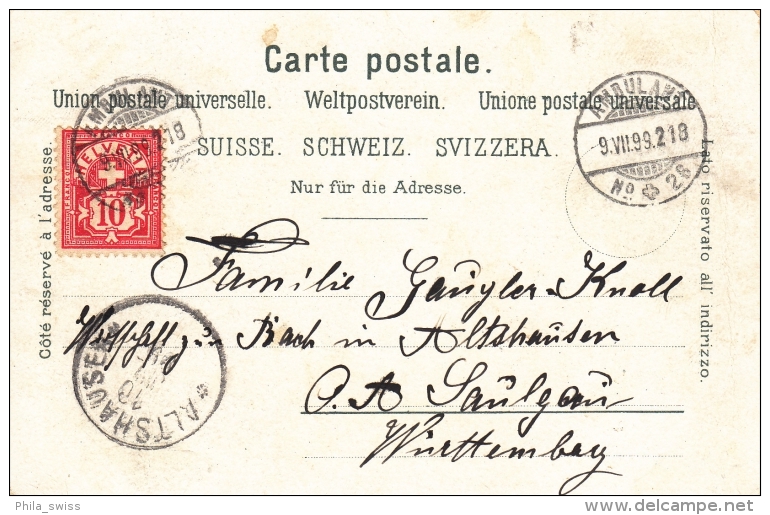 Carte postale.
Union postale universelle. Weltpostverein. Unione postale universale
SUISSE. SCHWEIZ. SVIZZERA.
Nur für die Adresse.
Côté réservé à l'adresse.
Lato riservato all' indirizzo.
AMBULANT
9.VII.99.218
No 26
AMBULANT
218
FRANCO
HELVETIA
10
Familie Gaugler-Knoll
Wirtschaft zum Bach in Altshausen
O. A Saulgau
Württemberg
ALTSHAUSEN
10
Phila_swiss
delcampe.net